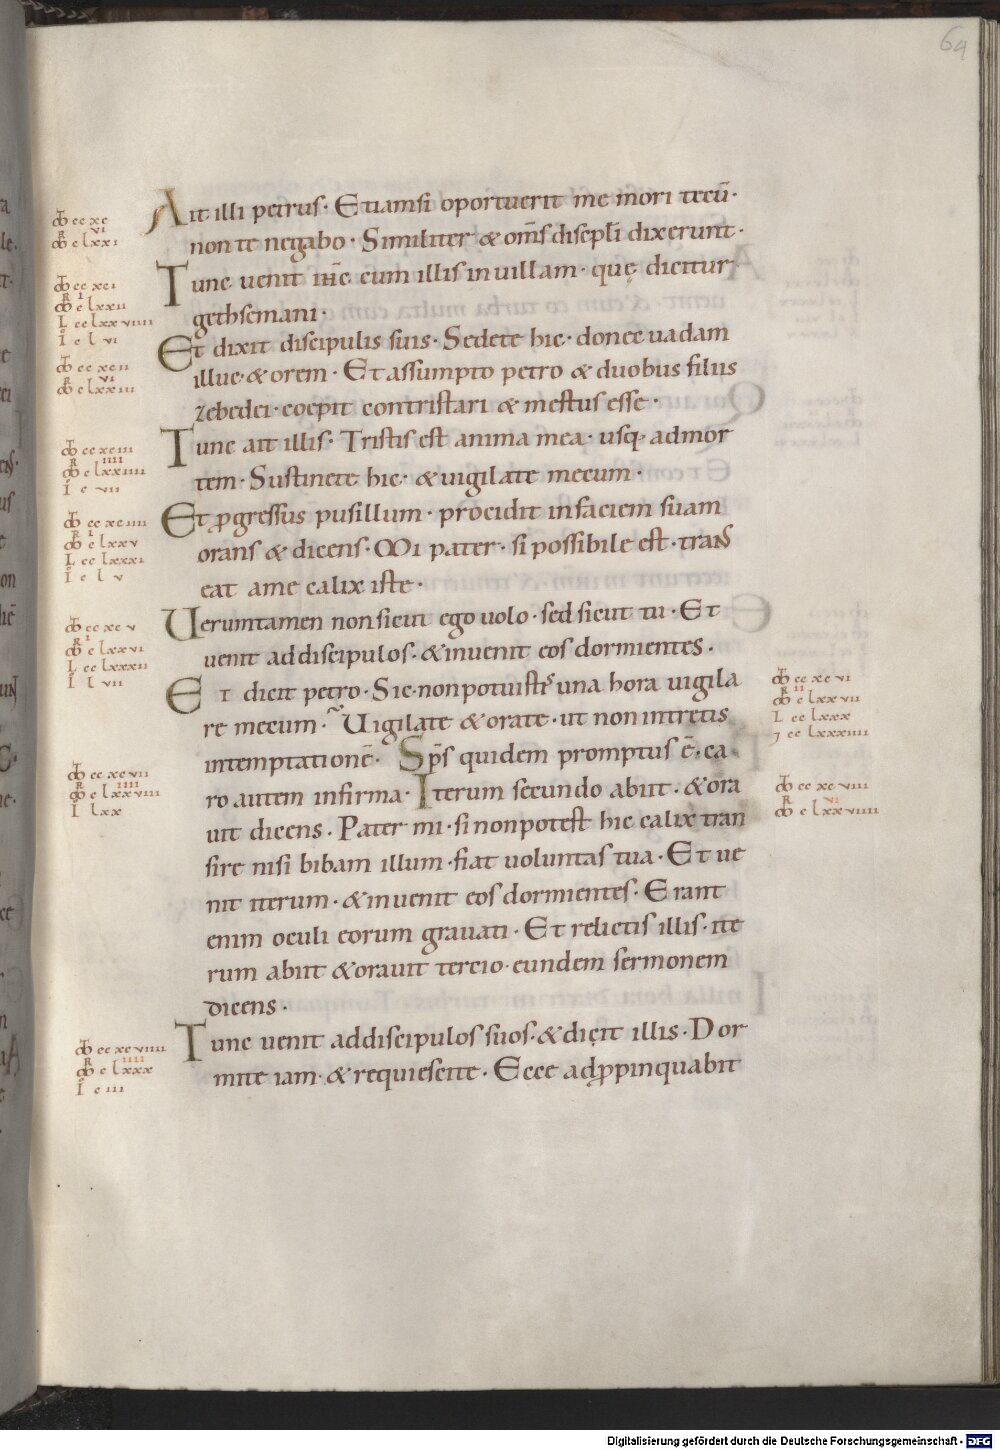 64
Ait illi petrus· Etiamsi oportuerit me mori tecū·
non te negabo· Similiter & oms̄ discipl̄i dixerunt·
Tunc uenit ih̄c cum illis in uillam· quę dicitur
gethsemani·
Et dixit discipulis suis· Sedete hic· donec uadam
illuc· & orem· Et assumpto petro & duobus filiis
zebedei· coepit contristari & mestus esse·
Tunc ait illis· Tristis est anima mea· usq; ad mor
tem· Sustinete hic· & uigilate mecum·
Et ꝓgressus pusillum· procidit in faciem suam
orans & dicens· Mi pater· si possibile est· trans
eat a me calix iste·
Uerumtamen non sicut ego uolo· sed sicut tu· Et
uenit ad discipulos· & inuenit eos dormientes·
Et dicit petro· Sic· non potuistis una hora uigila
re mecum· Uigilate & orate· ut non intretis
in temptationē· Sps̄ quidem promptus ē· ca
ro autem infirma· Iterum secundo abiit· & ora
uit dicens· Pater mi· si non potest hic calix tran
sire nisi bibam illum· fiat uoluntas tua· Et ue
nit iterum· & inuenit eos dormientes· Erant
enim oculi eorum grauati· Et relictis illis· ite
rum abiit & orauit tercio· eundem sermonem
dicens·
Tunc uenit ad discipulos suos· & dicit illis· Dor
mite iam· & requiescite· Ecce adꝓpinquabit
Digitalisierung gefördert durch die Deutsche Forschungsgemeinschaft - DFG